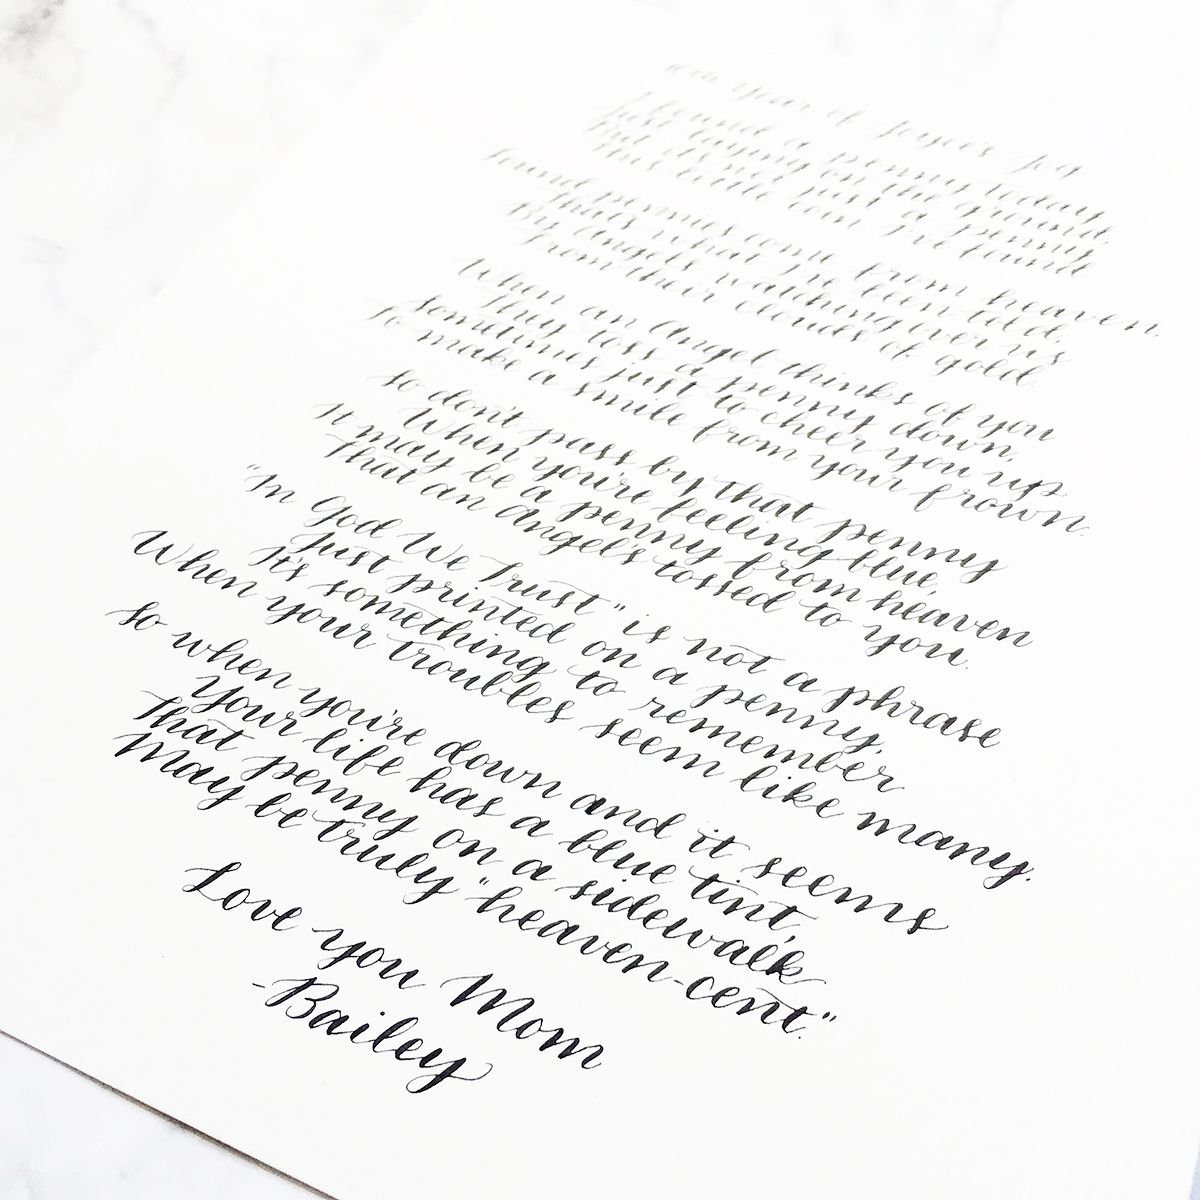 10th Year of Joyce's Jog
I found a penny today,
Just laying on the ground.
But it's not just a penny,
This little coin I've found
Found pennies come from heaven,
That's what I've been told.
By angels watching over us
From their clouds of gold.
When an Angel thinks of you
They toss a penny down,
Sometimes just to cheer you up
To make a smile from your frown.
So don't pass by that penny
When you're feeling blue,
It may be a penny from heaven
That an Angel's tossed to you.
"In God We Trust" is not a phrase
Just printed on a penny,
It's something to remember
When your troubles seem like many.
So when you're down and it seems
Your life has a blue tint,
That penny on a sidewalk
May be truly "heaven-cent."
Love you Mom
-Bailey